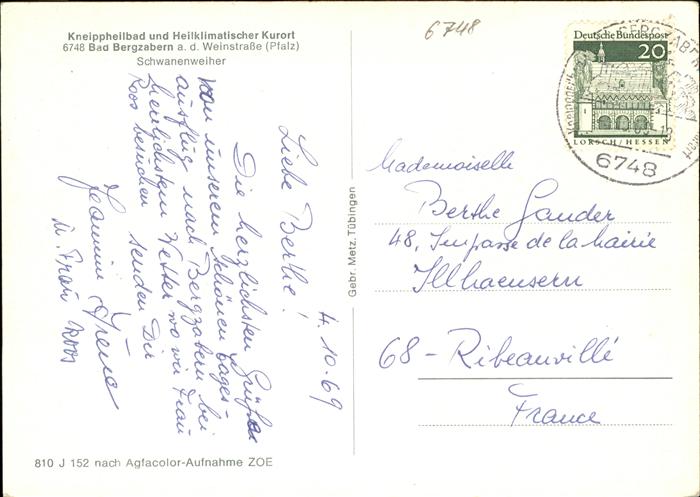 Kneippheilbad und Heilklimatischer Kurort
6748 Bad Bergzabern a. d. Weinstraße (Pfalz)
Schwanenweiher
6748
Deutsche Bundespost
20
LORSCH/HESSEN
6748
4.10.69
Liebe Berthe!
Die herzlichsten Grüße
von unserem schönen Tages-
ausflug nach Bergzabern bei
herrlichstem Wetter wo wir Frau
Koos besuchen senden Dir
Jeannine Irène
u. Frau Koos
Gebr. Metz, Tübingen
Mademoiselle
Berthe Gander
48, Impasse de la Mairie
Illhaeusern
68 - Ribeauvillé
France
810 J 152 nach Agfacolor-Aufnahme ZOE